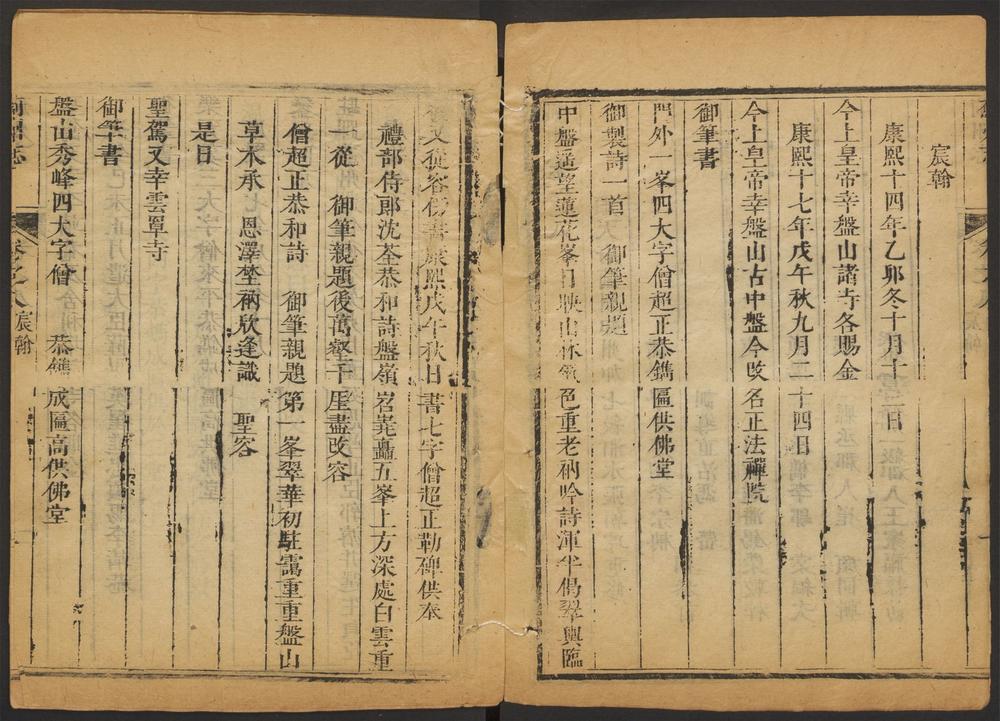 宸翰
康熙十四年乙卯冬十月十二日
今上皇帝幸盤山諸寺各賜金
康熙十七年戊午秋九月二十四日
今上皇帝幸盤山古中盤今改名正法禪院
御筆書
門外一峯四大字僧超正恭鐫匾供佛堂
御製詩一首 御筆親題
中盤遥望蓮花峯日映山林氣色重老衲吟詩渾半偈翠輿臨
又從容傳書康熙戊午秋日書七字僧超正勒碑供奉
禮部侍郎沈荃恭和詩盤嶺岧嶤矗五峯上方深處白雲重
一從 御筆親題後萬壑千厓盡改容
僧超正恭和詩 御筆親題第一峯翠華初駐靄重重盤山
草木承 恩澤埜衲欣逢識 聖容
是日
聖駕又幸雲罩寺
御筆書
盤山秀峰四大字僧 恭鐫成匾高供佛堂
卷之八宸翰